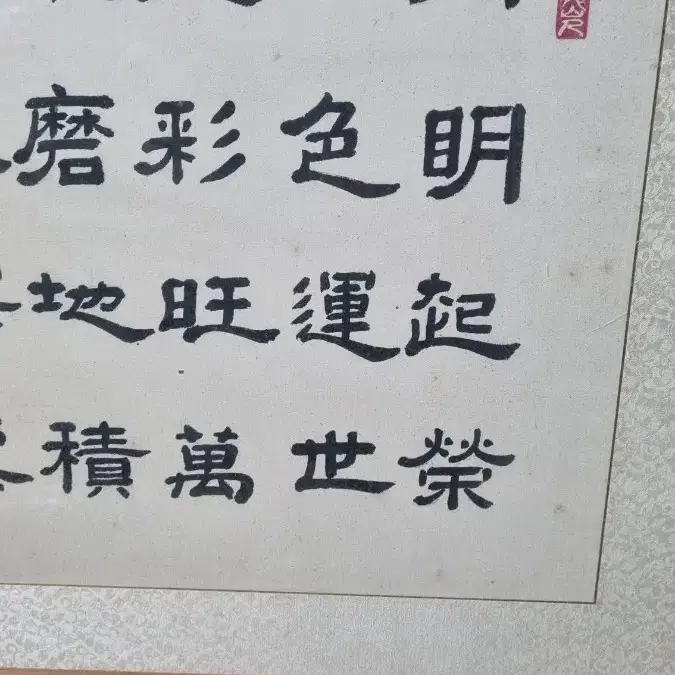 磨彩色明
地旺運起
積萬世榮